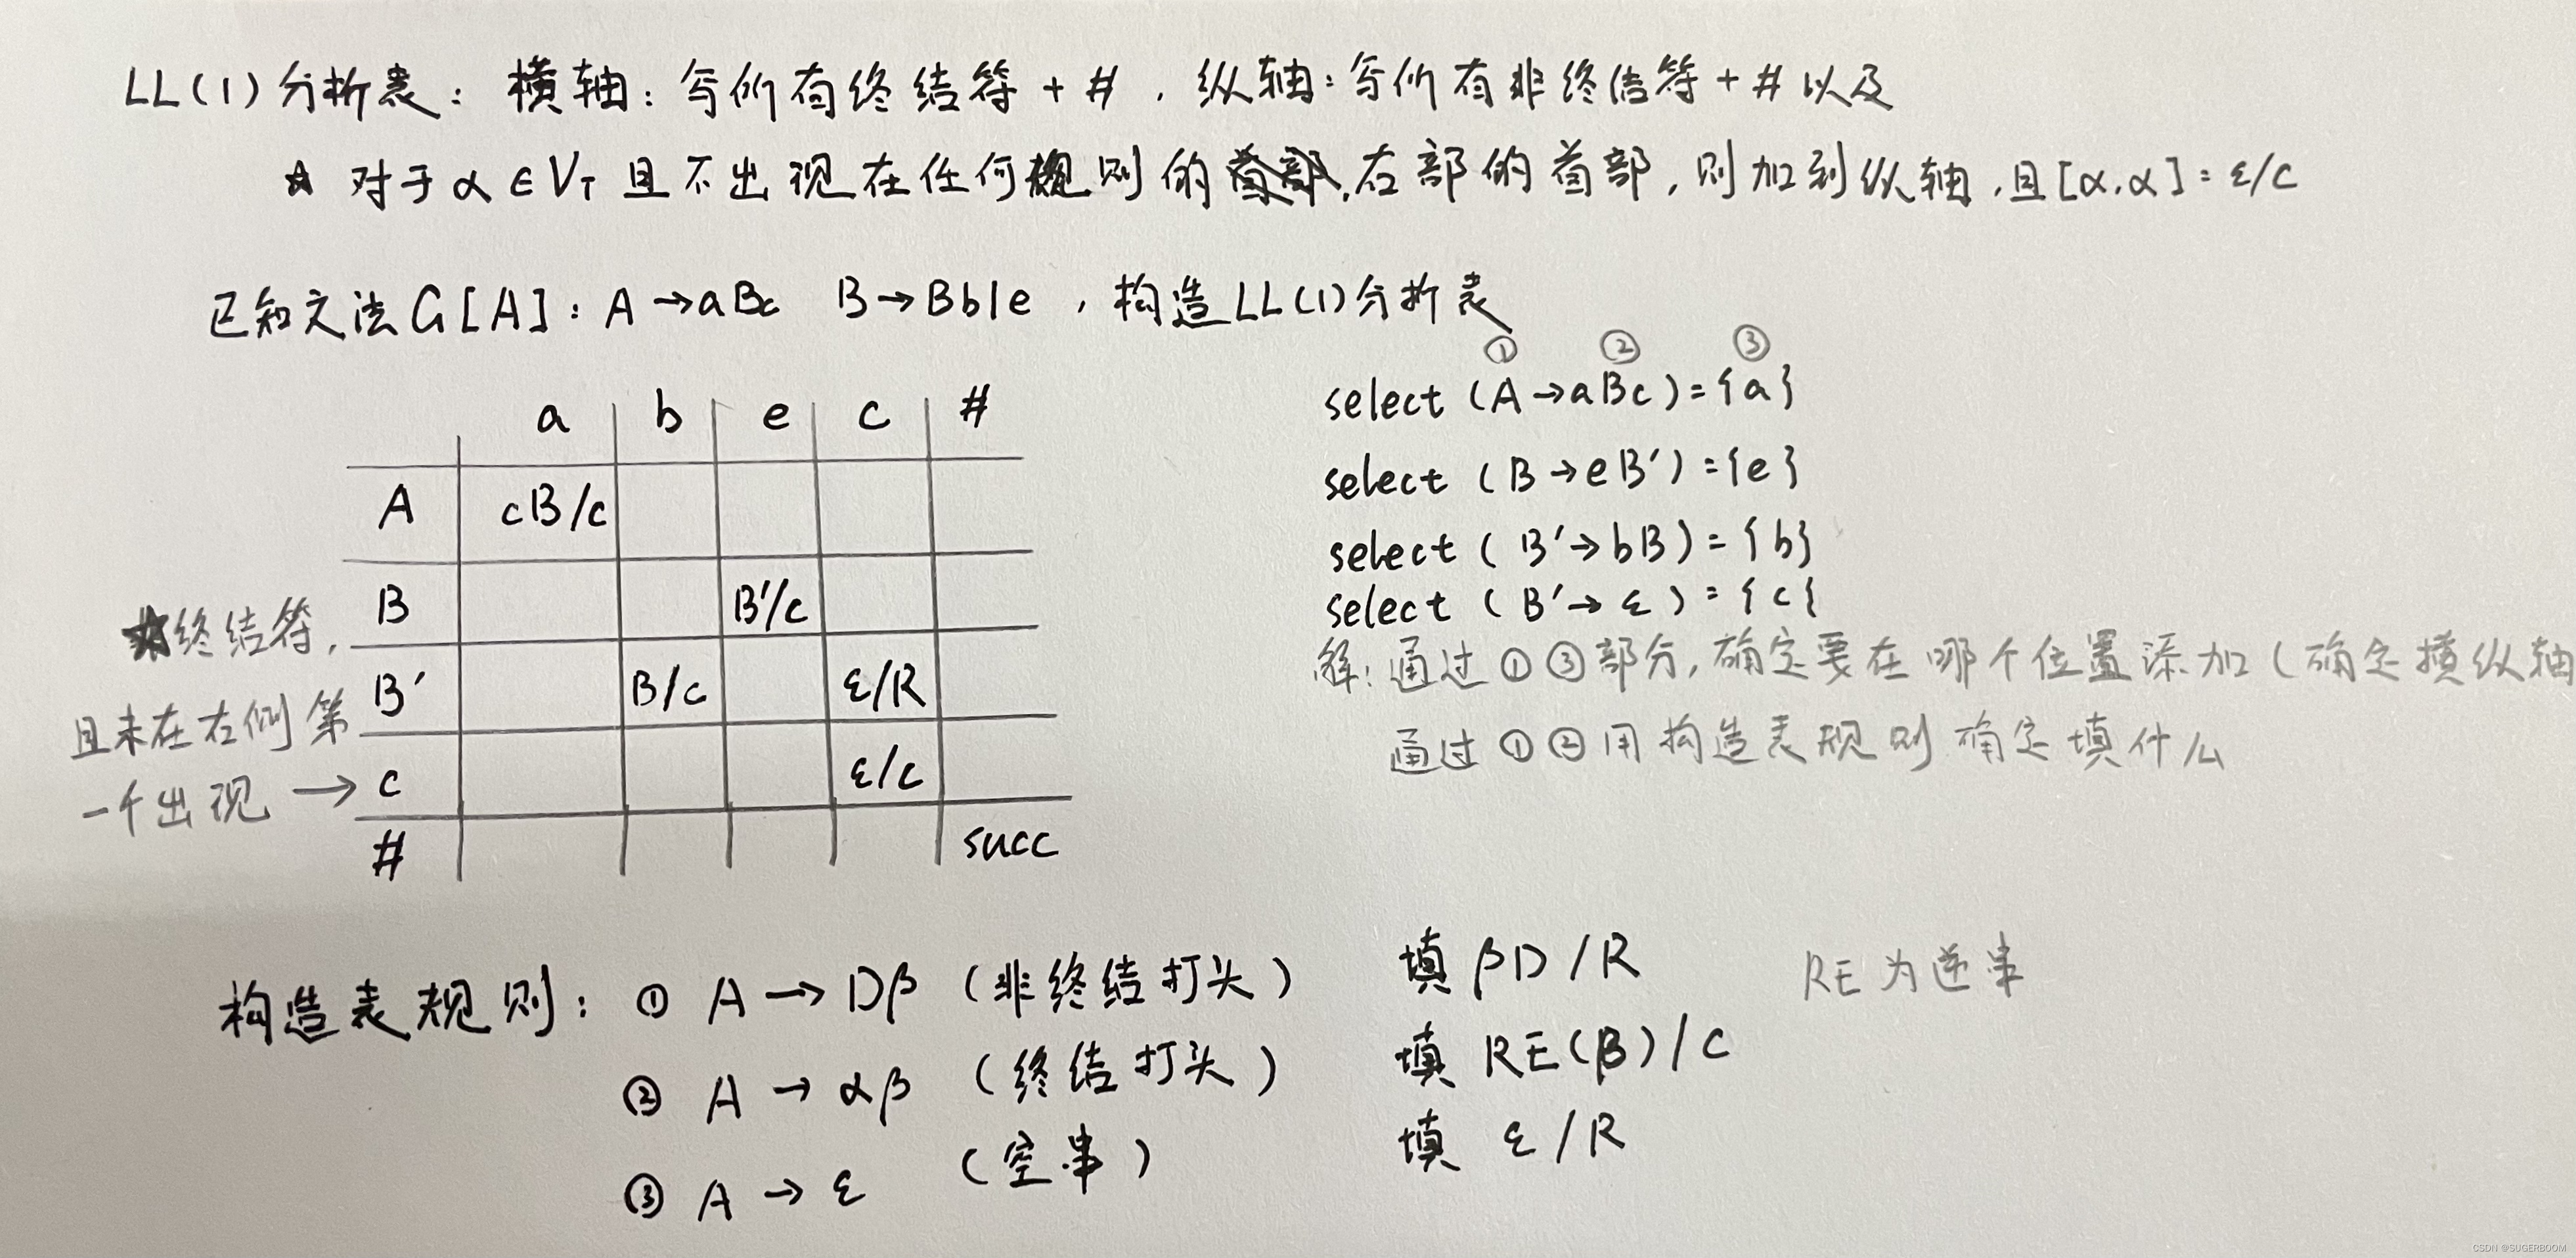 LL(1)分析表：横轴：写所有终结符+#，纵轴：写所有非终结符+#以及
☆ 对于α∈VT且不出现在任何规则的右部的首部，则加到纵轴，且[α,α]=ε/c
已知文法G[A]：A→aBc B→Bb|e，构造LL(1)分析表
① ② ③
select (A→aBc)={a}
select (B→eB′)={e}
select (B′→bB)={b}
select (B′→ε)={c}
解：通过①③部分，确定要在哪个位置添加(确定横纵轴
通过①②用构造表规则确定填什么
a b e c #
A cB/c
B B′/c
B′ B/c ε/R
c ε/c
# succ
☆终结符，
且未在右侧第
一个出现→
构造表规则：① A→Dβ (非终结打头) 填βD/R RE为逆串
② A→αβ (终结打头) 填 RE(β)/c
③ A→ε (空串) 填 ε/R
CSDN @SUGERBOOM